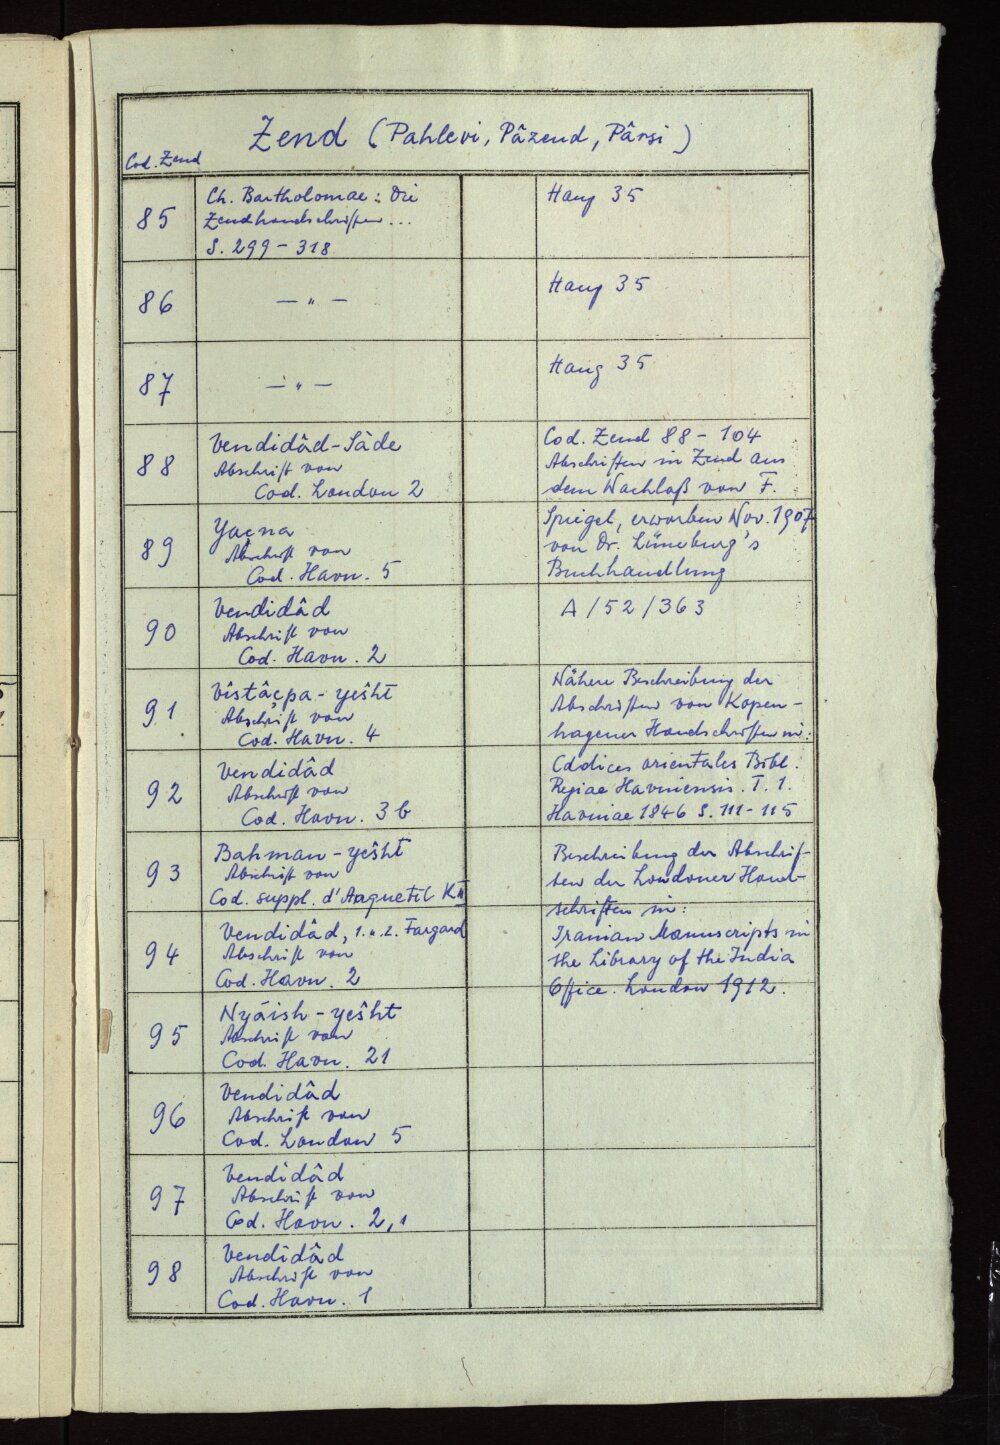 Zend (Pahlevi, Pâzend, Pârsi)
Cod. Zend
85
Ch. Bartholomae: Die
Zendhandschriften...
S. 299-318
Haug 35
86
— " —
Haug 35
87
— " —
Haug 35
88
Vendidâd-Sâde
Abschrift von
Cod. London 2
Cod. Zend 88 - 104
Abschriften in Zend aus
dem Nachlaß von F.
89
Yaçna
Abschrift von
Cod. Havn. 5
Spiegel, erworben Nov. 1907
von Dr. Lüneburg's
Buchhandlung
90
Vendidâd
Abschrift von
Cod. Havn. 2
A/52/363
91
Vîstâçpa-yesht
Abschrift von
Cod. Havn. 4
Nähere Beschreibung der
Abschriften von Kopen-
hagener Handschriften in:
92
Vendidâd
Abschrift von
Cod. Havn. 3b
Codices orientales Bibl.
Regiae Havniensis. T. 1.
Havniae 1846 S. 111-115
93
Bahman-yesht
Abschrift von
Cod. suppl. d'Anquetil
Beschreibung der Abschrif-
ten der Londoner Hand-
schriften in:
94
Vendidâd, 1. u. 2. Fargard
Abschrift von
Cod. Havn. 2
Iranian Manuscripts in
the Library of the India
Office. London 1912.
95
Nyâish-yesht
Abschrift von
Cod. Havn. 21
96
Vendidâd
Abschrift von
Cod. London 5
97
Vendidâd
Abschrift von
Cod. Havn. 2,1
98
Vendidâd
Abschrift von
Cod. Havn. 1